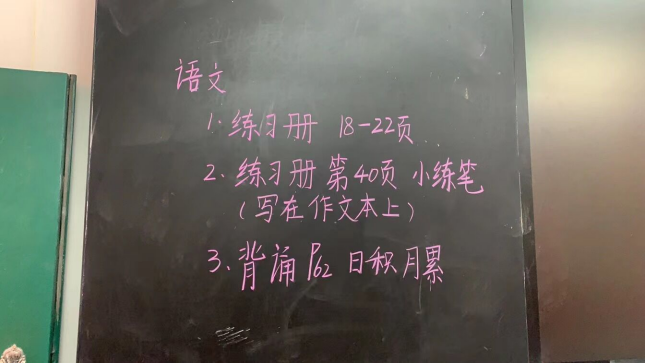 语文
1. 练习册 18-22页
2. 练习册 第40页 小练笔
(写在作文本上)
3. 背诵 P62 日积月累